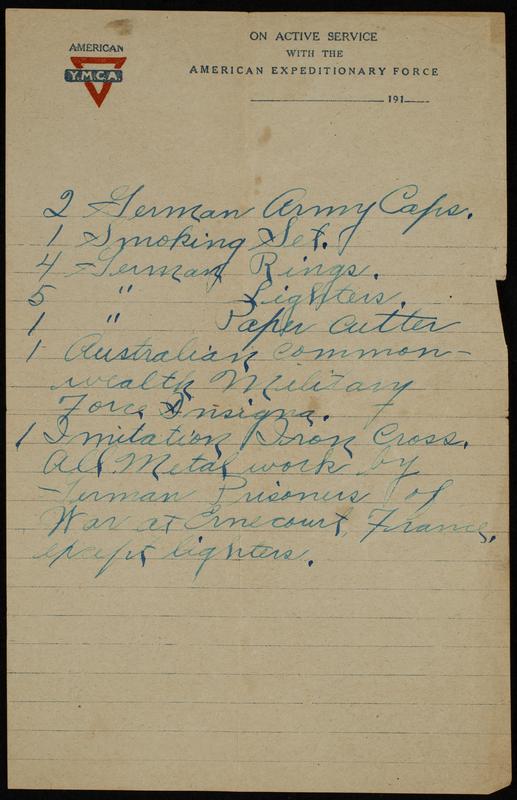 AMERICAN
Y.M.C.A.
ON ACTIVE SERVICE
WITH THE
AMERICAN EXPEDITIONARY FORCE
191
2 German Army Caps.
1 Smoking Set.
4 German Rings.
5 " Lighters.
1 " Paper Cutter
1 Australian Common-
wealth Military
Force Insigna.
1 Imitation Iron Cross.
All Metal work by
German Prisoners of
War at Ernecourt, France,
except lighters.